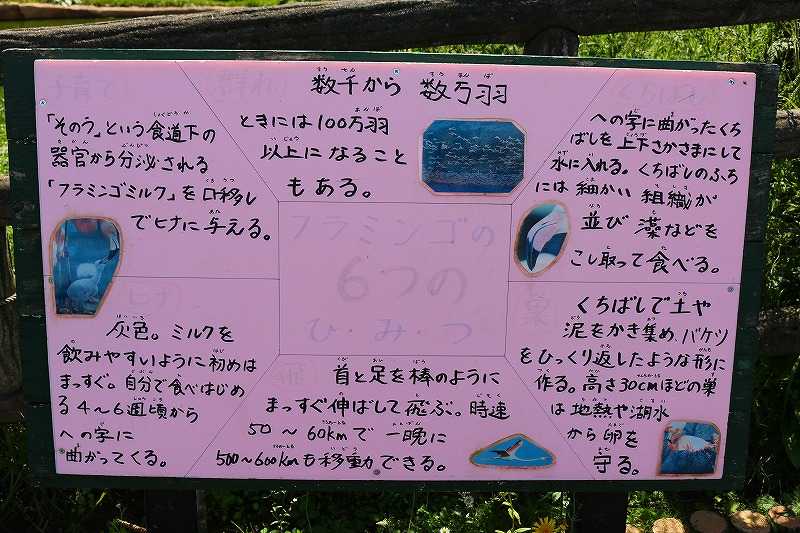 子育て
「そのう」という食道下の
器官から分泌される
「フラミンゴミルク」を口移し
でヒナに与える。
群れ
数千から 数万羽
ときには100万羽
以上になること
もある。
くちばし
への字に曲がったくち
ばしを上下さかさまにして
水に入れる。くちばしのふち
には細かい 組織が
並び 藻などを
こし取って食べる。
フラミンゴの
6つの
ひ・み・つ
ヒナ
灰色。ミルクを
飲みやすいように初めは
まっすぐ。自分で食べはじめ
る4〜6週頃から
への字に
曲がってくる。
飛
首と足を棒のように
まっすぐ伸ばして飛ぶ。時速
50〜60kmで一晩に
500〜600kmも移動できる。
巣
くちばしで土や
泥をかき集め、バケツ
をひっくり返したような形に
作る。高さ30cmほどの巣
は地熱や湖水
から卵を
守る。